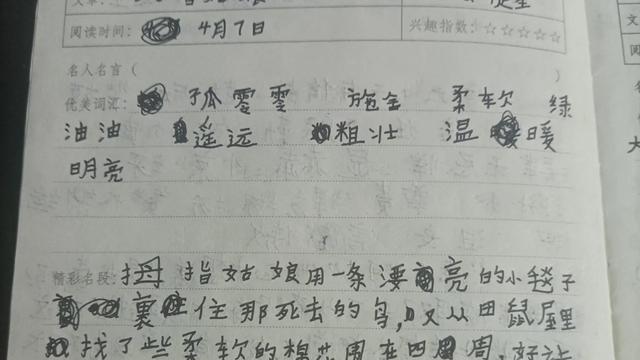 阅读时间： 4月7日 兴趣指数：☆☆☆☆☆
名人名言（
优美词汇： 孤零零 施舍 柔软 绿
油油 遥远 粗壮 温暖
明亮
精彩名段：拇指姑娘用一条漂亮的小毯子
裹住那死去的鸟，又从田鼠屋里
找了些柔软的棉花围在四周，好让